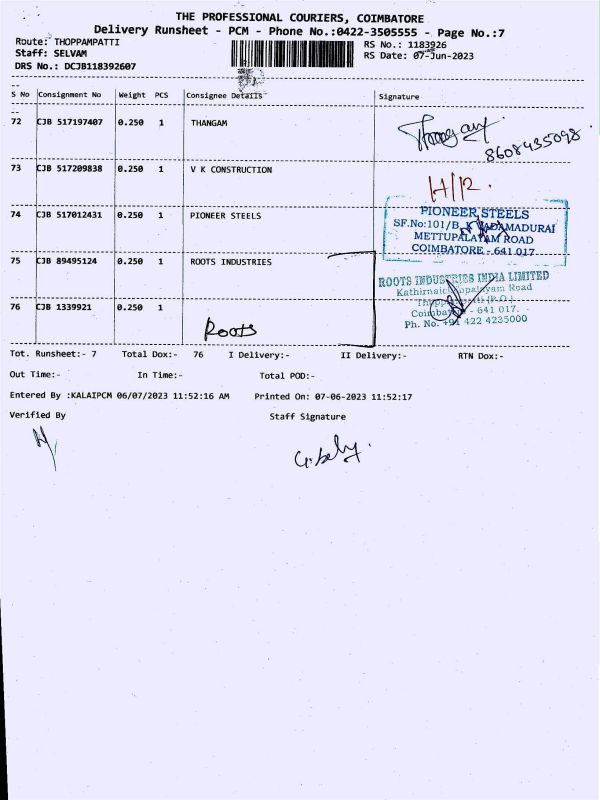 THE PROFESSIONAL COURIERS, COIMBATORE
Delivery Runsheet - PCM - Phone No.:0422-3505555 - Page No.:7
Route: THOPPAMPATTI
RS No.: 1183926
Staff: SELVAM
RS Date: 07-Jun-2023
DRS No.: DCJB118392607
S No Consignment No Weight PCS Consignee Details Signature
72 CJB 517197407 0.250 1 THANGAM
8608435098
73 CJB 517209838 0.250 1 V K CONSTRUCTION
74 CJB 517012431 0.250 1 PIONEER STEELS
PIONEER STEELS
SF.No:101/B, ADAMADURAI
METTUPALAYAM ROAD
COIMBATORE - 641 017
75 CJB 89495124 0.250 1 ROOTS INDUSTRIES
ROOTS INDUSTRIES INDIA LIMITED
Road
76 CJB 1339921 0.250 1
Roots
Coimbatore - 641 017.
Ph. No. +91 422 4235000
Tot. Runsheet:- 7 Total Dox:- 76 I Delivery:- II Delivery:- RTN Dox:-
Out Time:- In Time:- Total POD:-
Entered By :KALAIPCM 06/07/2023 11:52:16 AM Printed On: 07-06-2023 11:52:17
Verified By Staff Signature